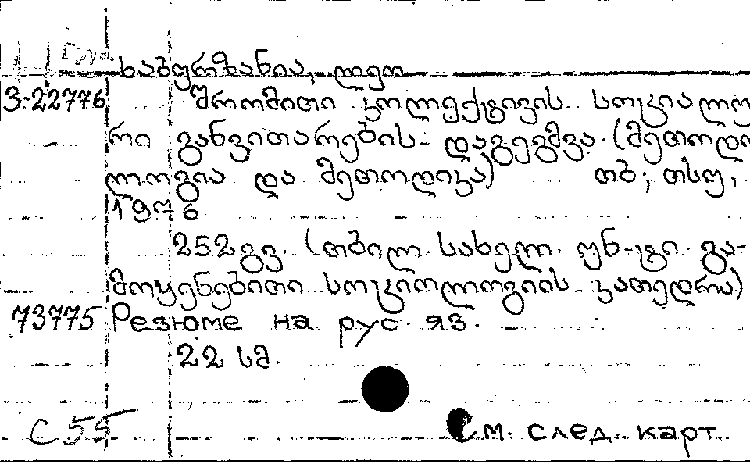 ხაბურზანია, ლეო
3-22776 შრომითი კოლექტივის სოციალუ-
რი განვითარების დაგეგმვა (მეთოდო-
ლოგია და მეთოდიკა) თბ., თსუ,
1976
252 გვ. (თბილ. სახელმ. უნ-ტი. გა-
მოყენებითი სოციოლოგიის კათედრა)
73775 Резюме на рус яз.
22 სმ.
C 55 См. след. карт.